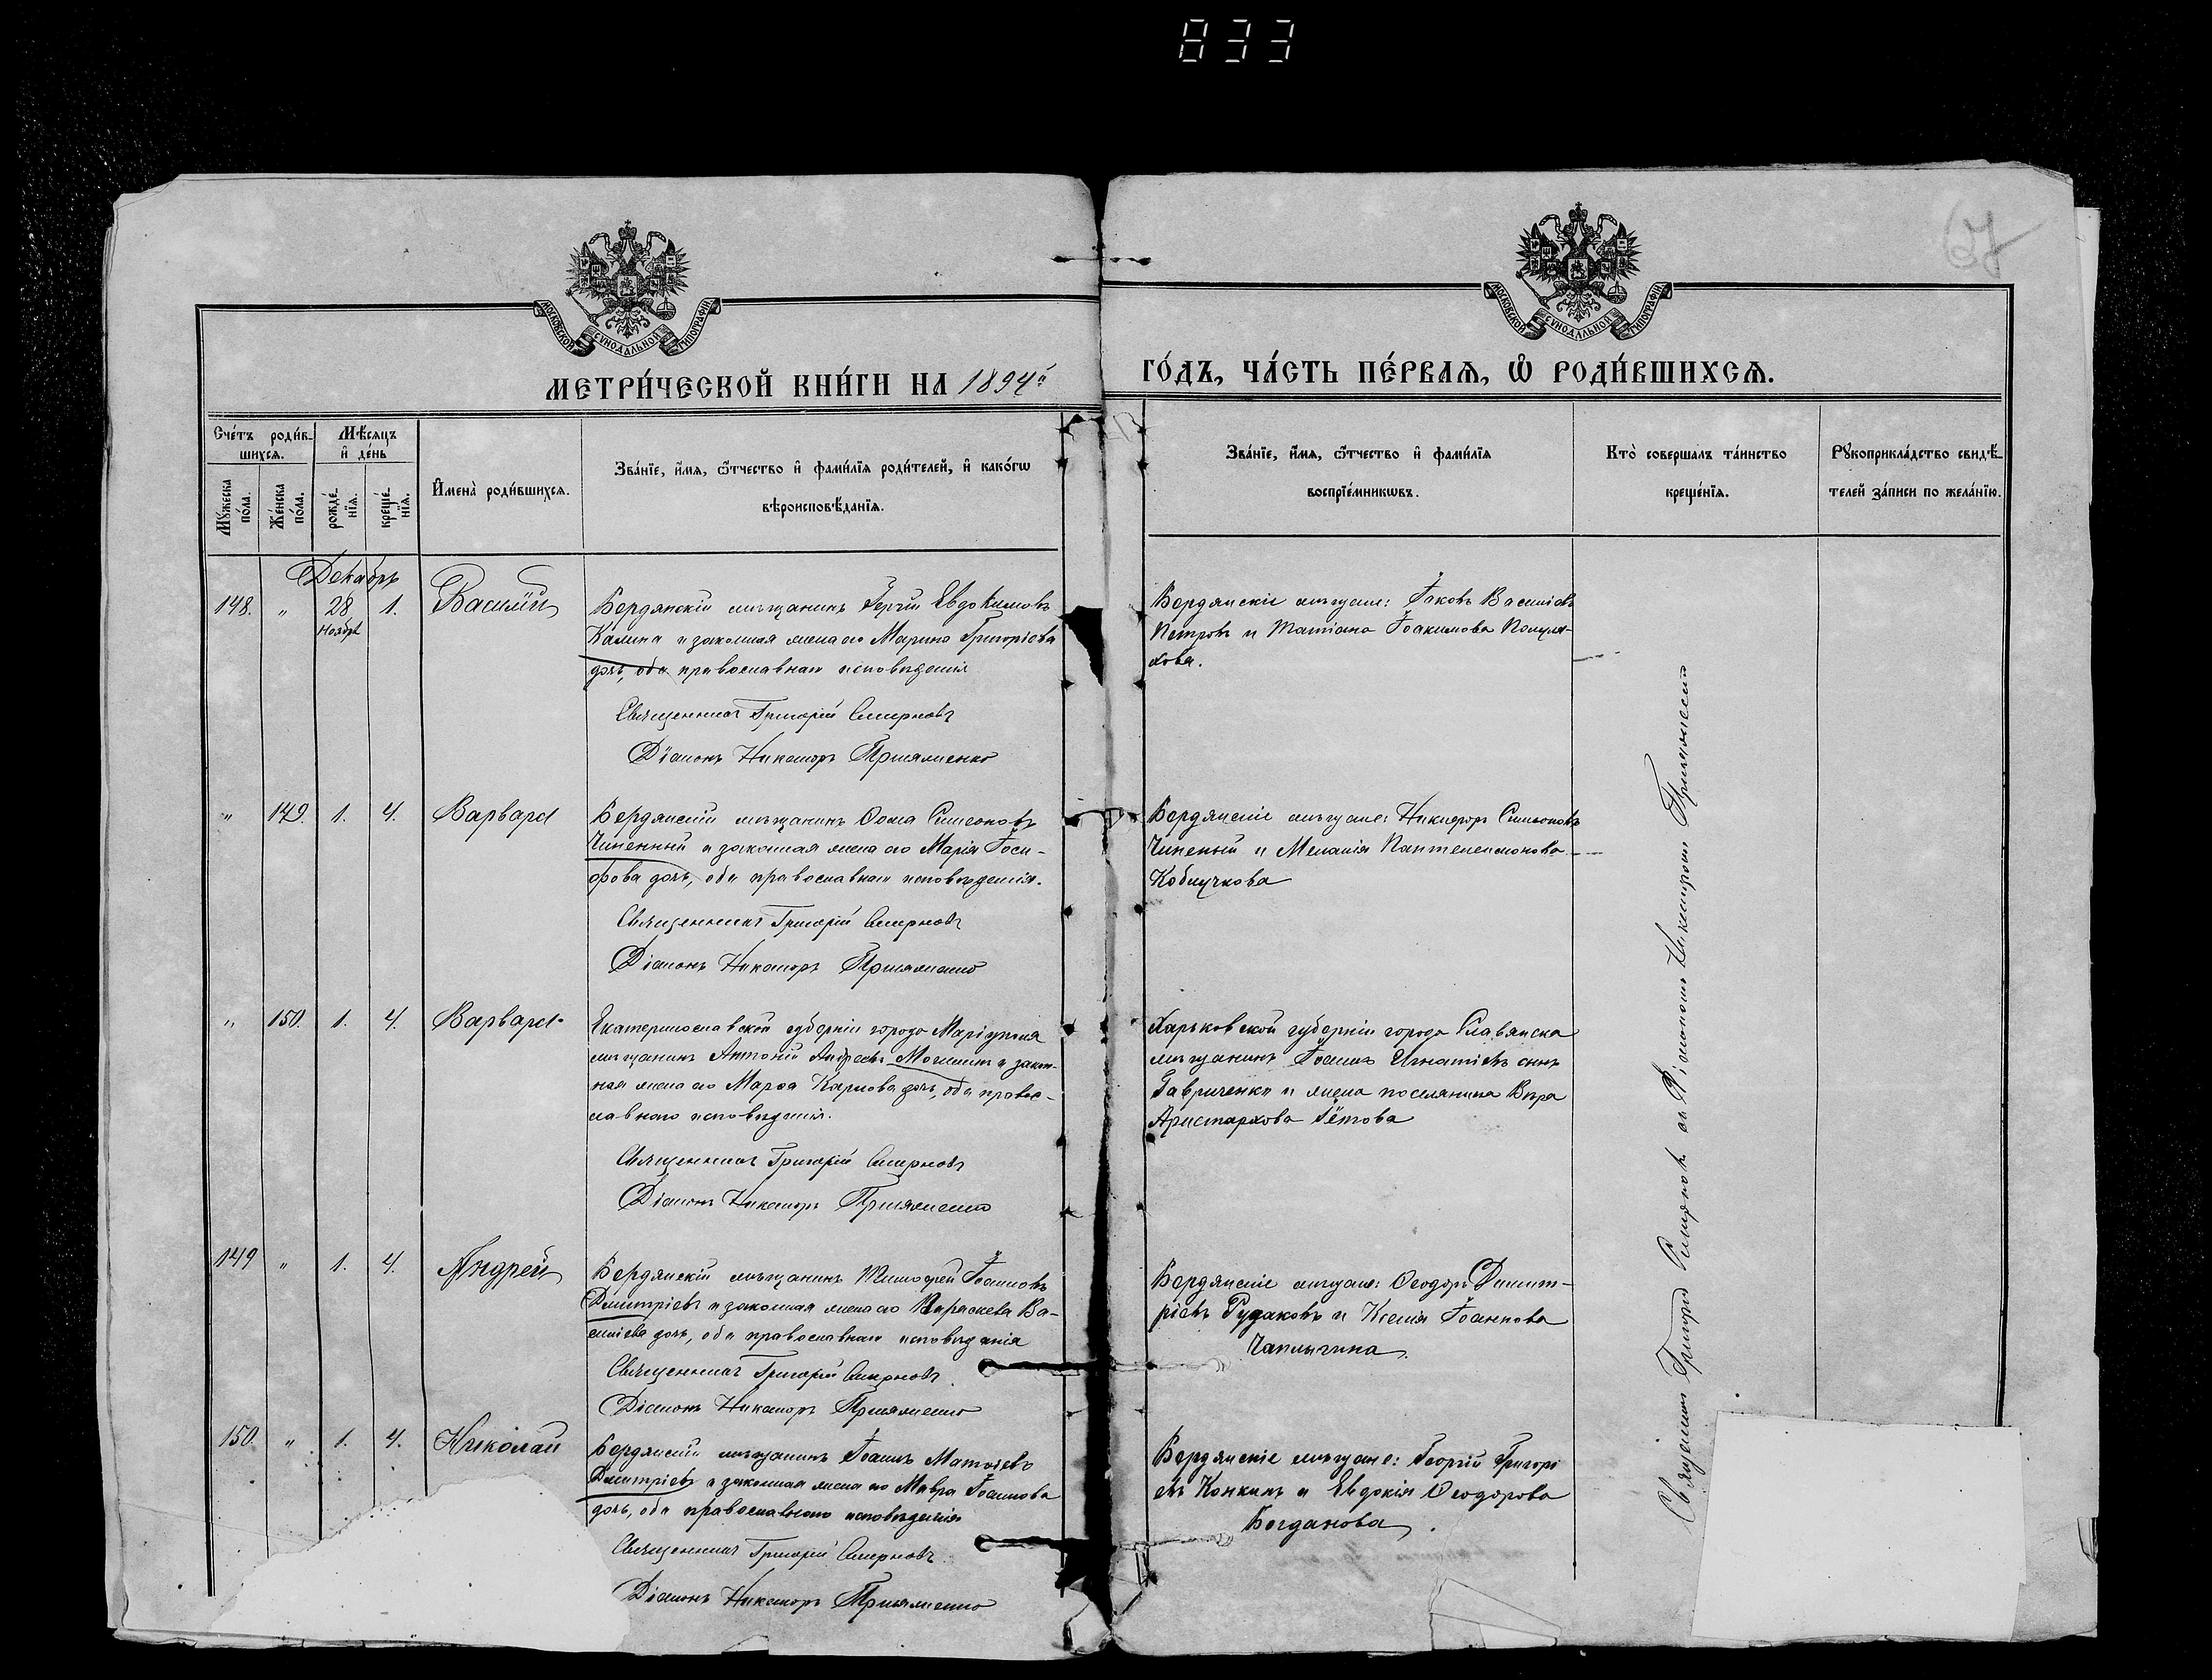 833
27
МОСКОВСКОЙ СѴНОДАЛЬНОЙ ТИПОГРАФІИ
МОСКОВСКОЙ СѴНОДАЛЬНОЙ ТИПОГРАФІИ
МЕТРИ́ЧЕСКОЙ КНИ́ГИ НА 1894й
ГО́ДЪ, ЧА́СТЬ ПЕ́РВАѦ, Ѡ РОДИ́ВШИХСѦ.
Сче́тъ роди́в-
шихсѧ.
Мѣ́сѧцъ
и҆ де́нь
Мꙋ́жеска по́ла.
Же́нска по́ла.
рожде́-
нїѧ.
креще́-
нїѧ.
И҆мена̀ роди́вшихсѧ.
Зва́нїе, и҆́мѧ, ѻ҆́тчество и҆ фами́лїѧ роди́телей, и҆ како́гѡ
вѣроисповѣ́данїѧ.
Зва́нїе, и҆́мѧ, ѻ҆́тчество и҆ фами́лїѧ
воспрїе́мникѡвъ.
Кто̀ соверша́лъ та́инство
креще́нїѧ.
Рꙋкоприкла́дство свидѣ́-
телей за́писи по жела́нїю.
Декабрь
148. " 28 1. Василій
Ноября
Бердянскій мѣщанинъ Евдокимовъ
Калина и законная жена его Марина Григоріева
дочь, оба православнаго исповѣданія
Священникъ Григорій Смирновъ
Діаконъ Никаноръ
Бердянскіе мѣщане: Іаковъ Василіевъ
Петровъ и Татіана Іоакимова
хова.
" 149. 1. 4. Варвара
Бердянскій мѣщанинъ Ѳома Симеоновъ
Чиненный и законная жена его Марія Іоси-
фова дочь, оба православнаго исповѣданія.
Священникъ Григорій Смирновъ
Діаконъ Никаноръ
Бердянскіе мѣщане: Никифоръ Симеоновъ
Чиненый и Меланія Пантелеимонова
Коблучкова
" 150. 1. 4. Варвара
Екатеринославской губерніи города Маріуполя
мѣщанинъ Антоній Андреевъ и закон-
ная жена его Марѳа Карпова дочь, оба право-
славнаго исповѣданія.
Священникъ Григорій Смирновъ
Діаконъ Никаноръ
Харьковской губерніи города Славянска
мѣщанинъ Іоаннъ Игнатіевъ сынъ
Гавриченко и жена поселянина Вѣра
Аристархова
149 " 1. 4. Андрей
Бердянскій мѣщанинъ Тимоѳей Іоанновъ
Дмитріевъ и законная жена его Параскева Ва-
силіева дочь, оба православнаго исповѣданія
Священникъ Григорій Смирновъ
Діаконъ Никаноръ
Бердянскіе мѣщане: Ѳеодоръ Димит-
ріевъ Рудаковъ и Ксенія Іоаннова
Чаплыгина.
150. " 1. 4. Николай
Бердянскій мѣщанинъ Іоаннъ Матѳіевъ
Дмитріевъ и законная жена его Мавра Іоаннова
дочь, оба православнаго исповѣданія
Священникъ Григорій Смирновъ
Діаконъ Никаноръ
Бердянскіе мѣщане: Георгій Григорі
евъ Конкинъ и Евдокія Ѳеодорова
Богданова.
Священникъ Григорій Смирновъ съ Діакономъ Никаноромъ